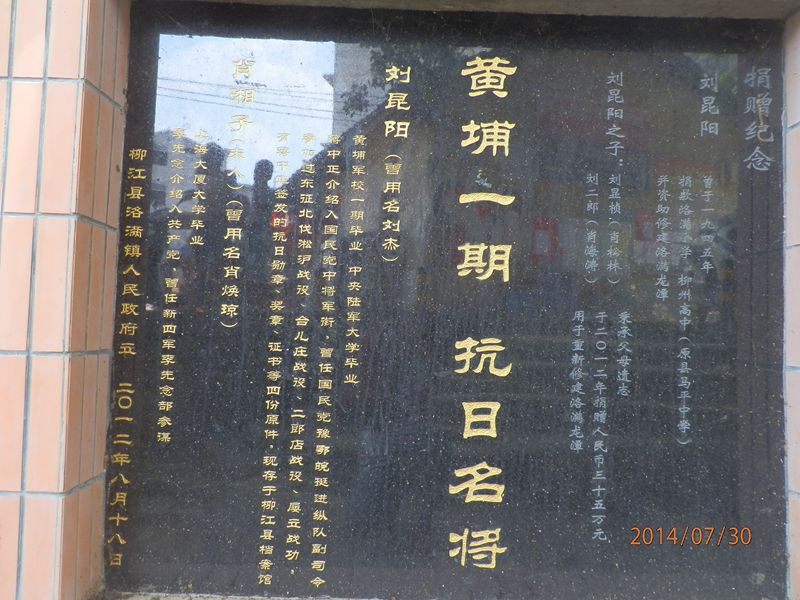 捐赠纪念
刘昆阳
曾于一九四五年
捐款洛满小学、柳州高中(原县马平中学)
并资助修建洛满龙潭
刘昆阳之子:刘显桢(肖彬林)
刘二郎(肖海涛)
秉承父母遗志
于二0一二年捐赠人民币三十五万元
用于重新修建洛满龙潭
黄埔一期 抗日名将
刘昆阳(曾用名刘杰)
黄埔军校一期毕业 中央陆军大学毕业
蒋中正介绍入国民党中将军衔,曾任国民党豫鄂皖挺进纵队副司令
参加过东征北伐淞沪战役、台儿庄战役、二郎店战役、屡立战功,
有蒋中正签发的抗日勋章、奖章、证书等四份原件,现存于柳江县档案馆
肖湘子(夫人)(曾用名肖焕琼)
上海大厦大学毕业
李先念介绍入共产党,曾任新四军李先念部参谋
柳江县洛满镇人民政府立 二0一二年八月十八日
2014/07/30